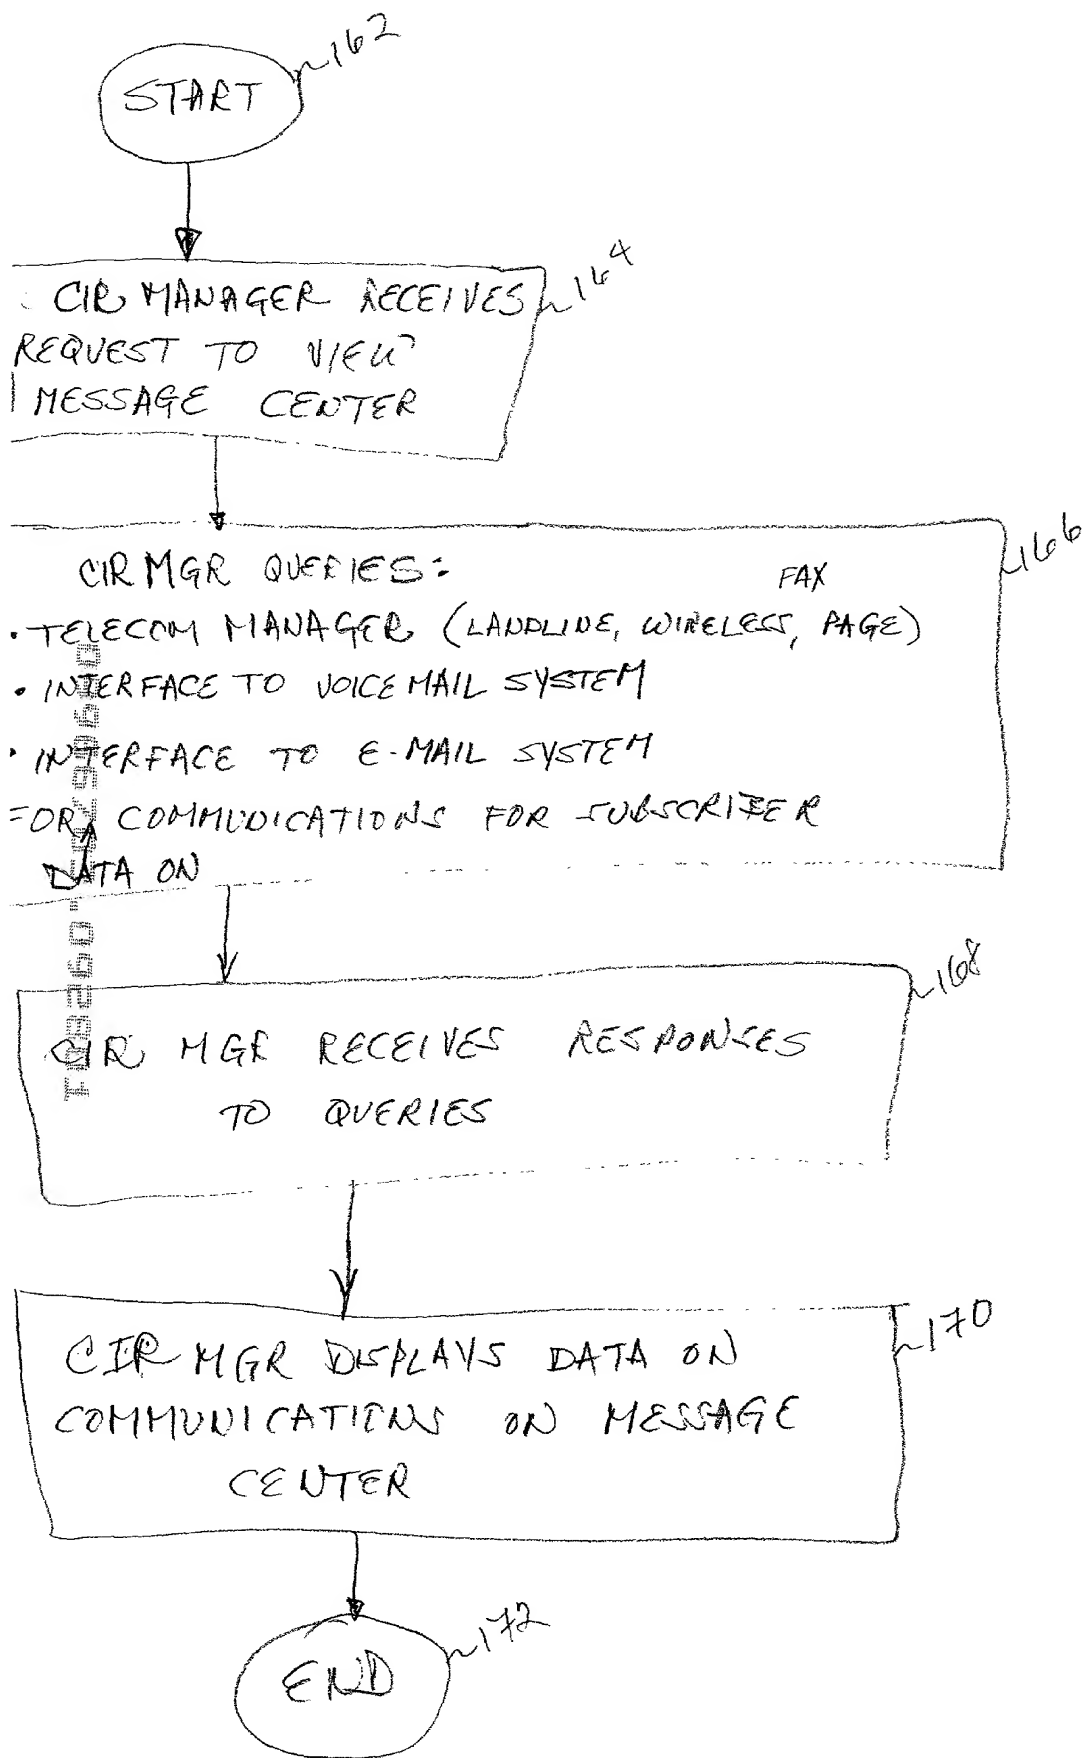 START
162
CIR MANAGER RECEIVES
REQUEST TO VIEW
MESSAGE CENTER
164
CIR MGR QUERIES:
FAX
• TELECOM MANAGER (LANDLINE, WIRELESS, PAGE)
• INTERFACE TO VOICE MAIL SYSTEM
• INTERFACE TO E-MAIL SYSTEM
FOR COMMUNICATIONS FOR SUBSCRIBER
DATA ON
166
CIR MGR RECEIVES RESPONSES
TO QUERIES
168
CIR MGR DISPLAYS DATA ON
COMMUNICATIONS ON MESSAGE
CENTER
170
END
172